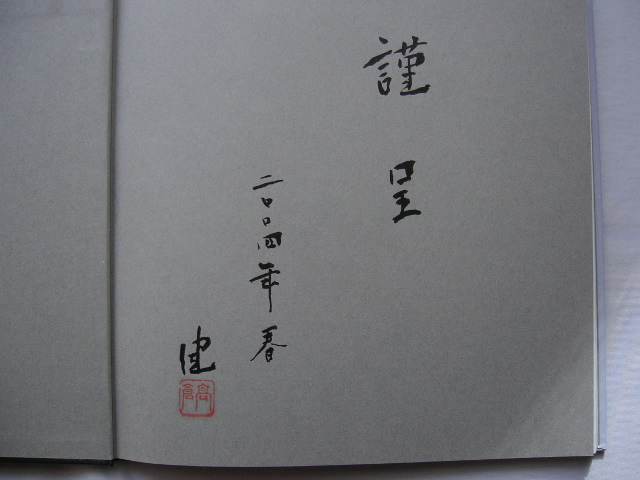 謹呈
二〇〇四年春
健